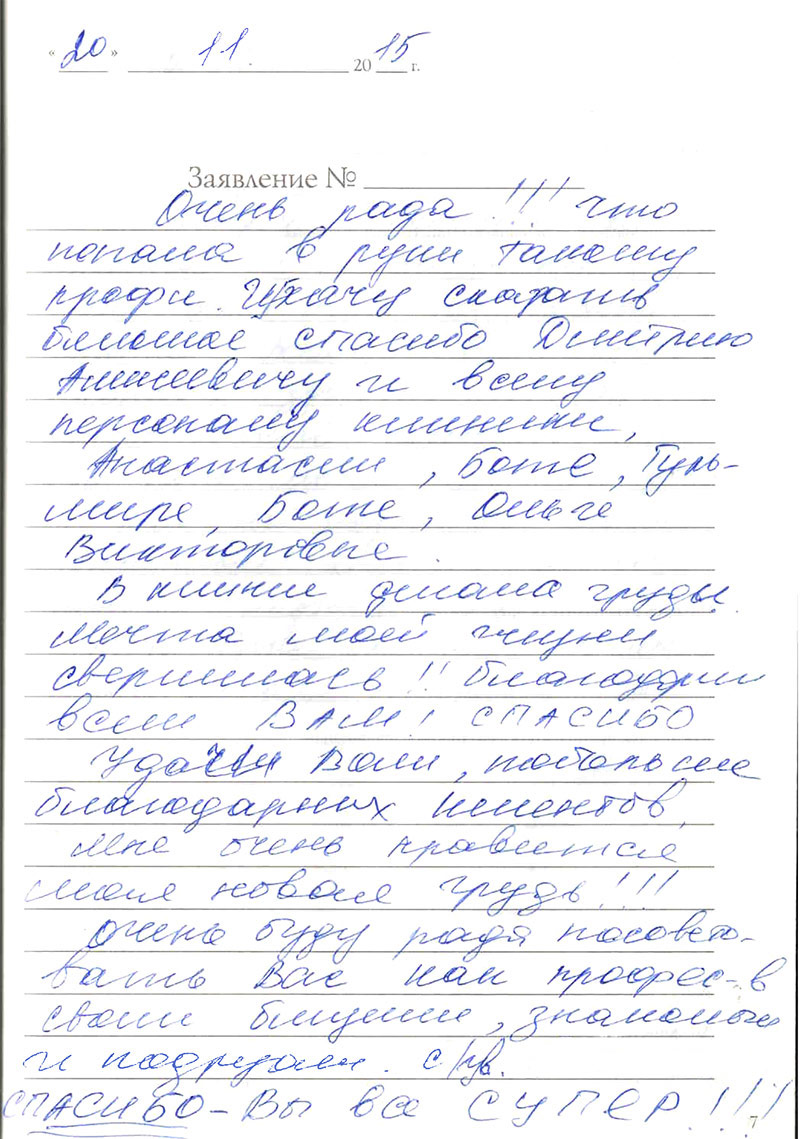 « 20 » 11. 20 15 г.
Заявление №
Очень рада !!! что
попала в руки такому
профи. Я хочу сказать
большое спасибо Дмитрию
Алексеевичу и всему
персоналу клиники,
Анастасии, Боте, Гуль-
мире, Боте, Ольге
Викторовне.
В клинике делала грудь.
Мечта моей жизни
свершилась!! благодаря
всем ВАМ! СПАСИБО
Удачи Вам, побольше
благодарных клиентов,
Мне очень нравится
моя новая грудь!!!
очень буду рада посовето-
вать Вас как профес-в
своим близким, знакомым
и подругам. с/ув.
СПАСИБО - Вы все СУПЕР!!!
7